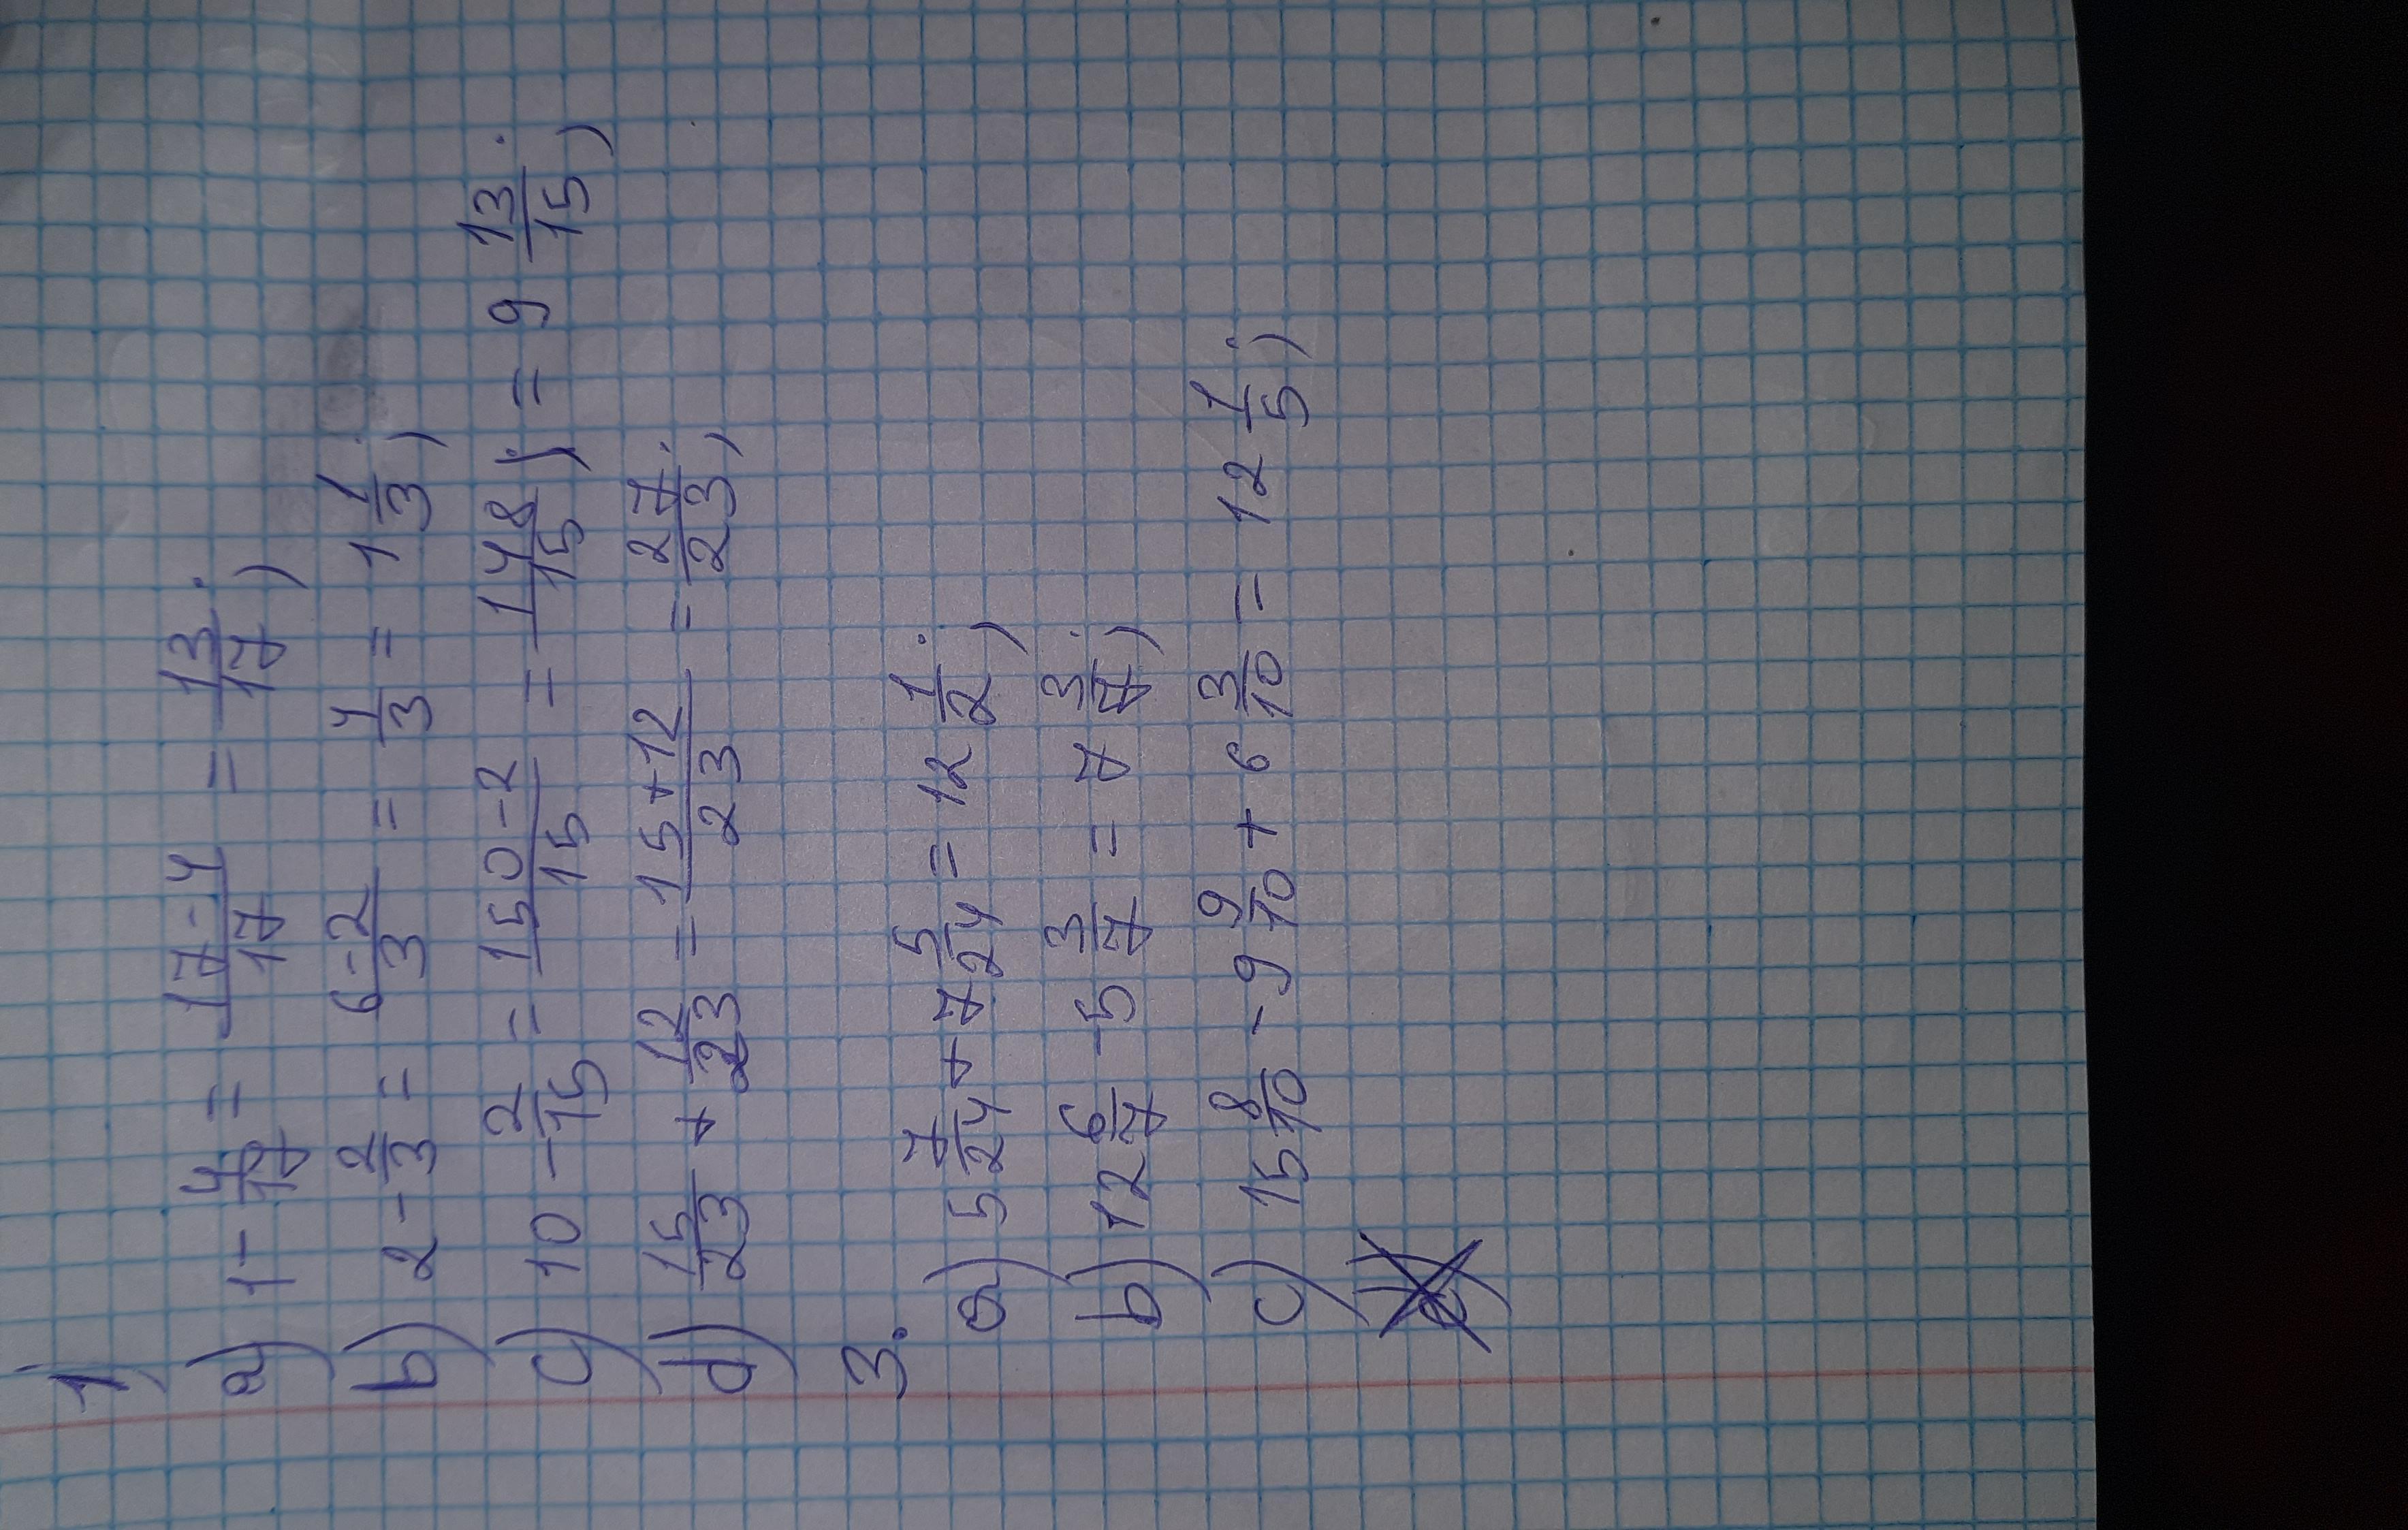 1)
a) 1 - 4/17 = 17-4/17 = 13/17;
b) 2 - 2/3 = 6-2/3 = 4/3 = 1 1/3;
c) 10 - 2/15 = 150-2/15 = 148/15; = 9 13/15;
d) 15/23 + 12/23 = 15+12/23 = 27/23;
3.
a) 5 7/24 + 7 5/24 = 12 1/2;
b) 12 6/7 - 5 3/7 = 7 3/7;
c) 15 8/10 - 9 9/10 + 6 3/10 = 12 1/5;